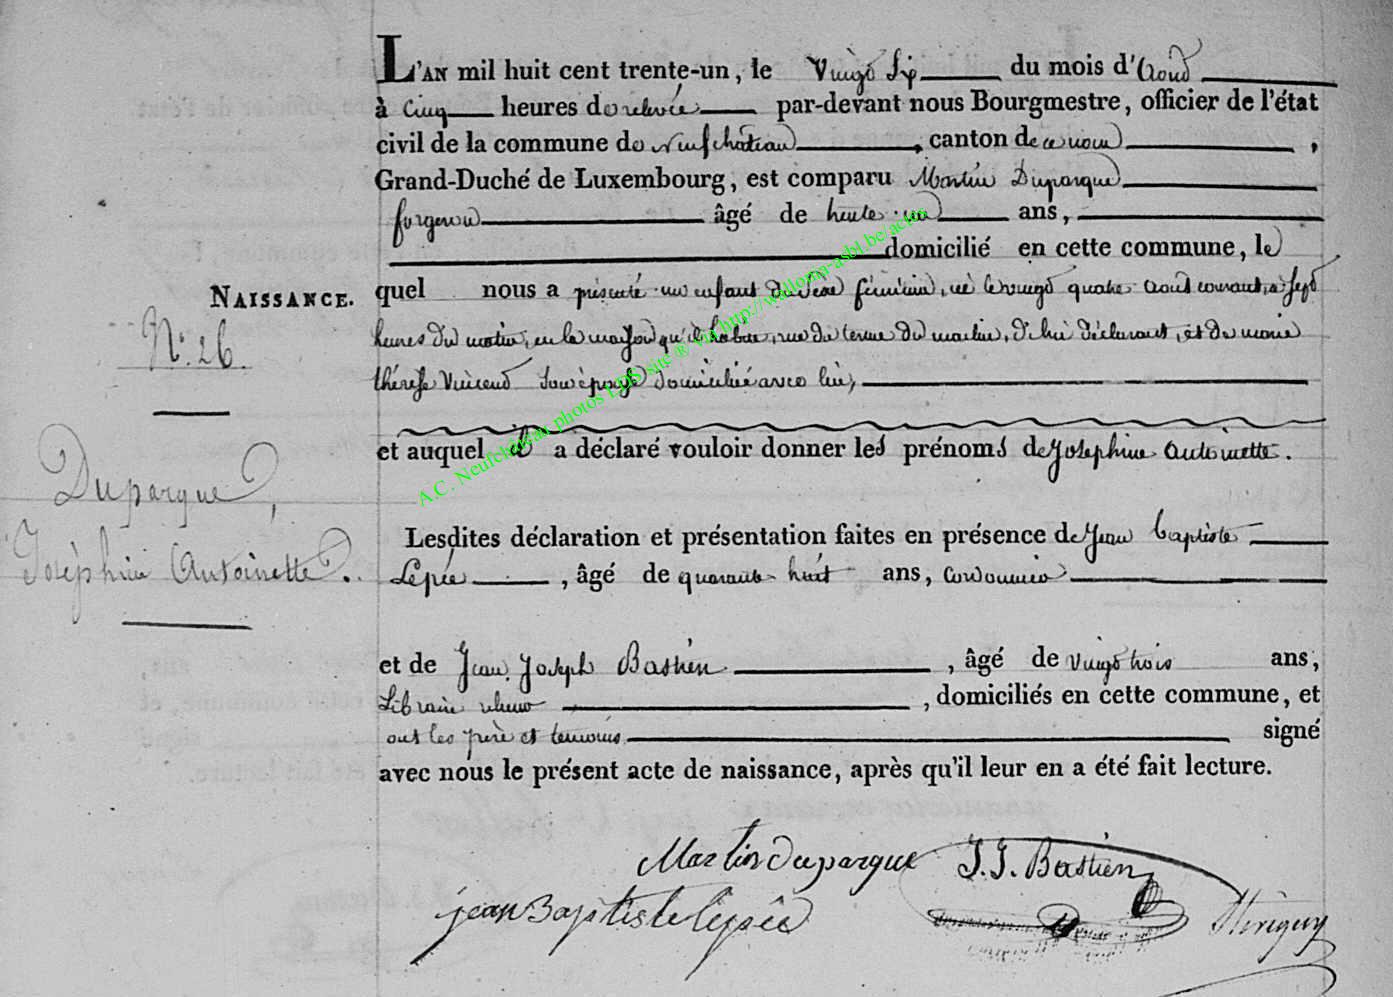 L'AN mil huit cent trente-un, le Vingt Six du mois d'Aout
à Cinq heures de relevée par-devant nous Bourgmestre, officier de l'état
civil de la commune de Neufchateau, canton de ce nom,
Grand-Duché de Luxembourg, est comparu Martin Duparque
forgeron âgé de trente un ans,
domicilié en cette commune, le
NAISSANCE. quel nous a présenté un enfant du sexe féminin, né le vingt quatre aout courant, à sept
N.° 26. heures du matin, en la maison qu'il habite, rue du terme du moulin, de lui déclarant, et de marie
thérèse Vincent Son épouse domiciliée avec lui,
et auquel il a déclaré vouloir donner les prénoms de Josephine Antoinette.
Duparque,
Joséphine Antoinette.
Lesdites déclaration et présentation faites en présence de Jean Baptiste
Lepée, âgé de quarante huit ans, Cordonnier
et de Jean Joseph Bastien, âgé de vingt trois ans,
Libraire relieur, domiciliés en cette commune, et
ont les père et temoins signé
avec nous le présent acte de naissance, après qu'il leur en a été fait lecture.
Martin duparque J. J. Bastien
jean Baptiste lepée
A.C. Neufchâteau photos LDS site ® via http://wallonia-asbl.be/actes